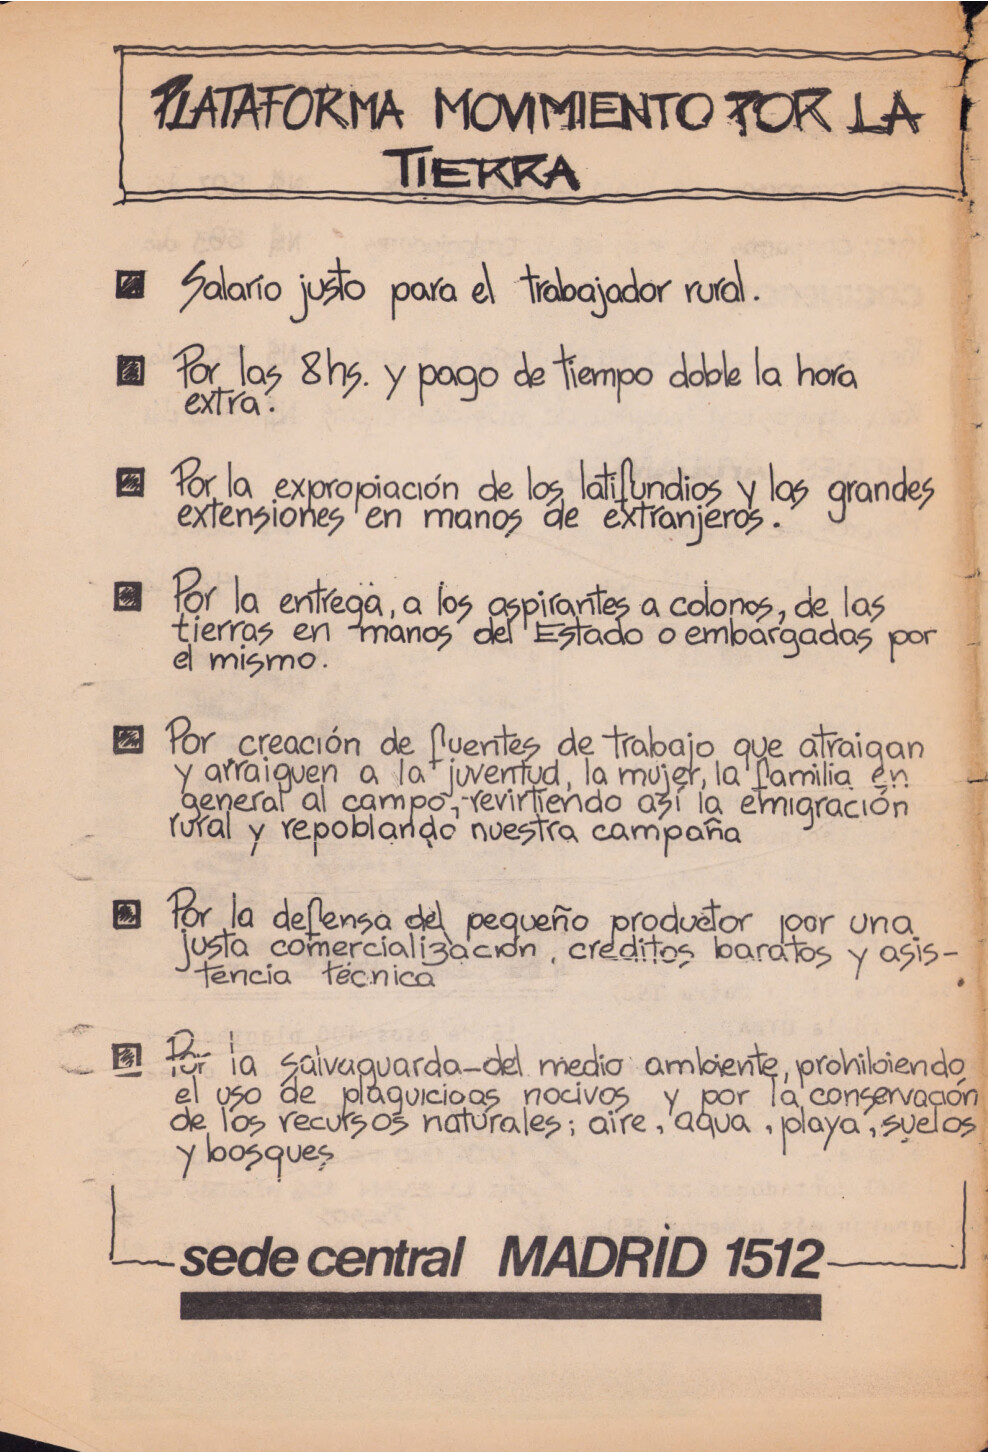 PLATAFORMA MOVIMIENTO POR LA
TIERRA
Salario justo para el trabajador rural.
Por las 8 hs. y pago de tiempo doble la hora
extra.
Por la expropiación de los latifundios y las grandes
extensiones en manos de extranjeros.
Por la entrega, a los aspirantes a colonos, de las
tierras en manos del Estado o embargadas por
el mismo.
Por creación de fuentes de trabajo que atraigan
y arraiguen a la juventud, la mujer, la familia en
general al campo, revirtiendo así la emigración
rural y repoblando nuestra campaña
Por la defensa del pequeño productor por una
justa comercialización, creditos baratos y asis-
tencia técnica
Por la salvaguarda del medio ambiente, prohibiendo
el uso de plaguicidas nocivos y por la conservación
de los recursos naturales; aire, agua, playa, suelos
y bosques
sede central MADRID 1512